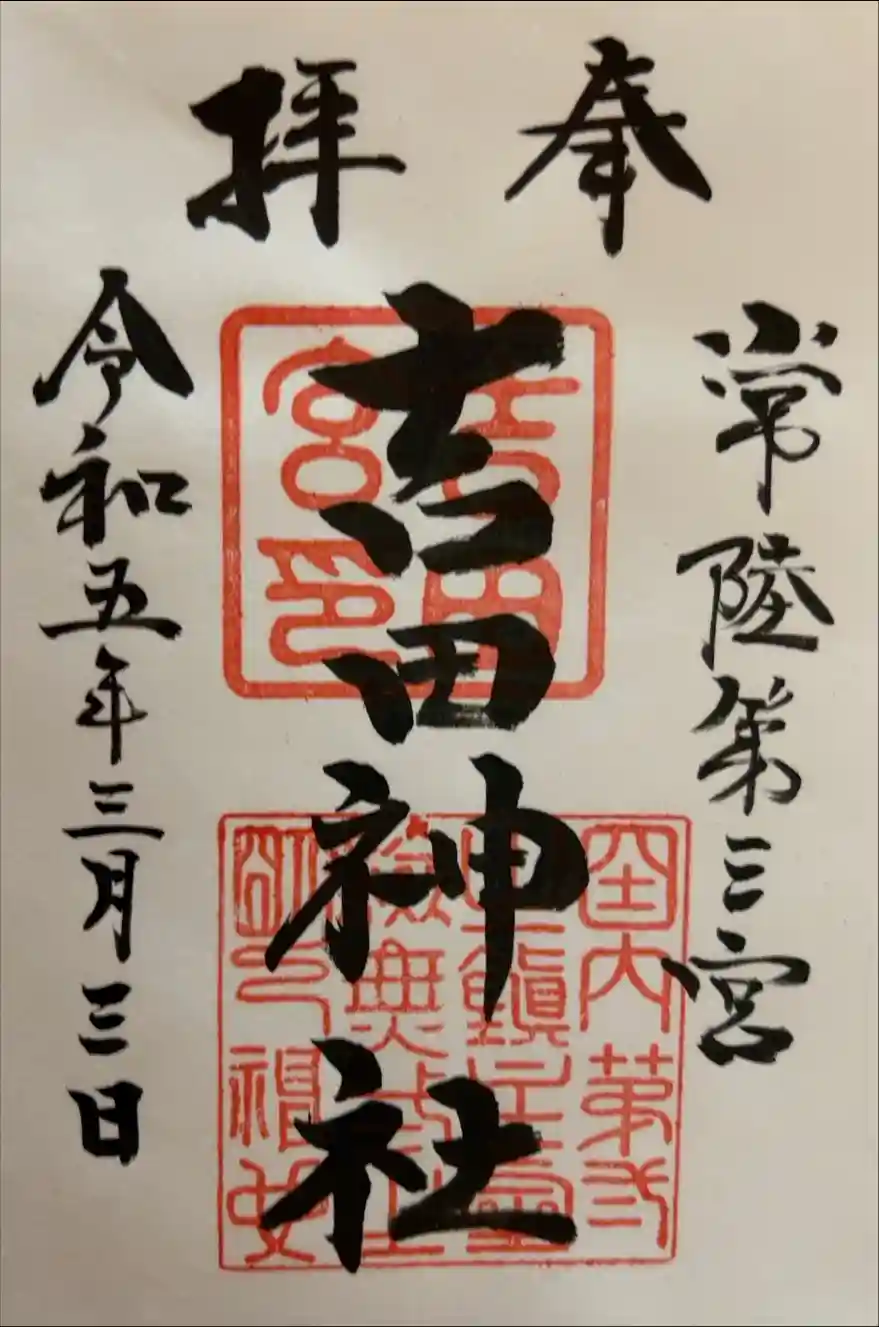 奉拝
常陸第三宮
吉田神社
令和五年三月三日
吉田宮印